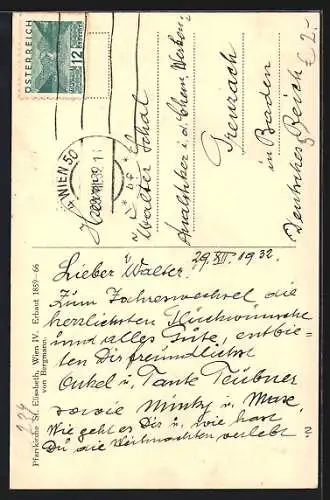 ÖSTERREICH
12
GROSCHEN
WIEN 50
Herrn
Walter
Analytiker i. d. Chem. Werken
Grenzach
in Baden
Deutsches Reich
€ 2.-
Pfarrkirche St. Elisabeth, Wien IV. Erbaut 1859–66
von Bergmann.
29. XII. 1932.
Lieber Walter.
Zum Jahreswechsel die
herzlichsten Glückwünsche
und alles Gute, entbie-
ten Dir freundlichst
Onkel u. Tante Teubner
sowie Minky u. Maxe,
Wie geht es Dir u. wie hast
Du die Weihnachten verlebt?